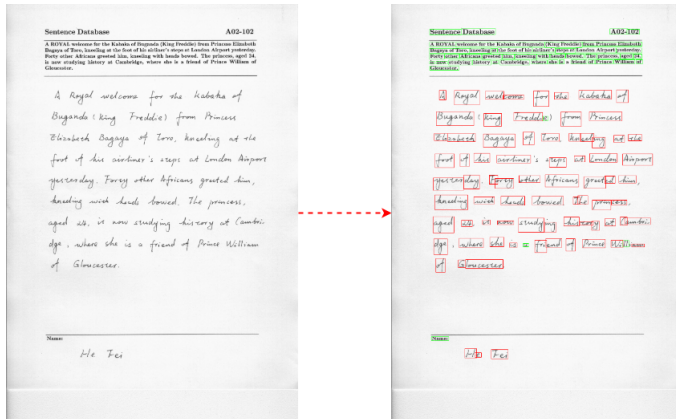 Sentence Database A02-102
A ROYAL welcome for the Kabaka of Buganda (King Freddie) from Princess Elizabeth
Bagaya of Toro, kneeling at the foot of his airliner's steps at London Airport yesterday.
Forty other Africans greeted him, kneeling with heads bowed. The princess, aged 24,
is now studying history at Cambridge, where she is a friend of Prince William of
Gloucester.
A Royal welcome for the Kabaka of
Buganda (King Freddie) from Princess
Elizabeth Bagaya of Toro, kneeling at the
foot of his airliner's steps at London Airport
yesterday. Forty other Africans greeted him,
kneeling with heads bowed. The princess,
aged 24, is now studying history at Cambri-
dge, where she is a friend of Prince William
of Gloucester.
Name:
He Fei
Sentence Database A02-102
A ROYAL welcome for the Kabaka of Buganda (King Freddie) from Princess Elizabeth
Bagaya of Toro, kneeling at the foot of his airliner's steps at London Airport yesterday.
Forty other Africans greeted him, kneeling with heads bowed. The princess, aged 24,
is now studying history at Cambridge, where she is a friend of Prince William of
Gloucester.
A Royal welcome for the Kabaka of
Buganda (King Freddie) from Princess
Elizabeth Bagaya of Toro, kneeling at the
foot of his airliner's steps at London Airport
yesterday. Forty other Africans greeted him,
kneeling with heads bowed. The princess,
aged 24, is now studying history at Cambri-
dge, where she is a friend of Prince William
of Gloucester.
Name:
He Fei